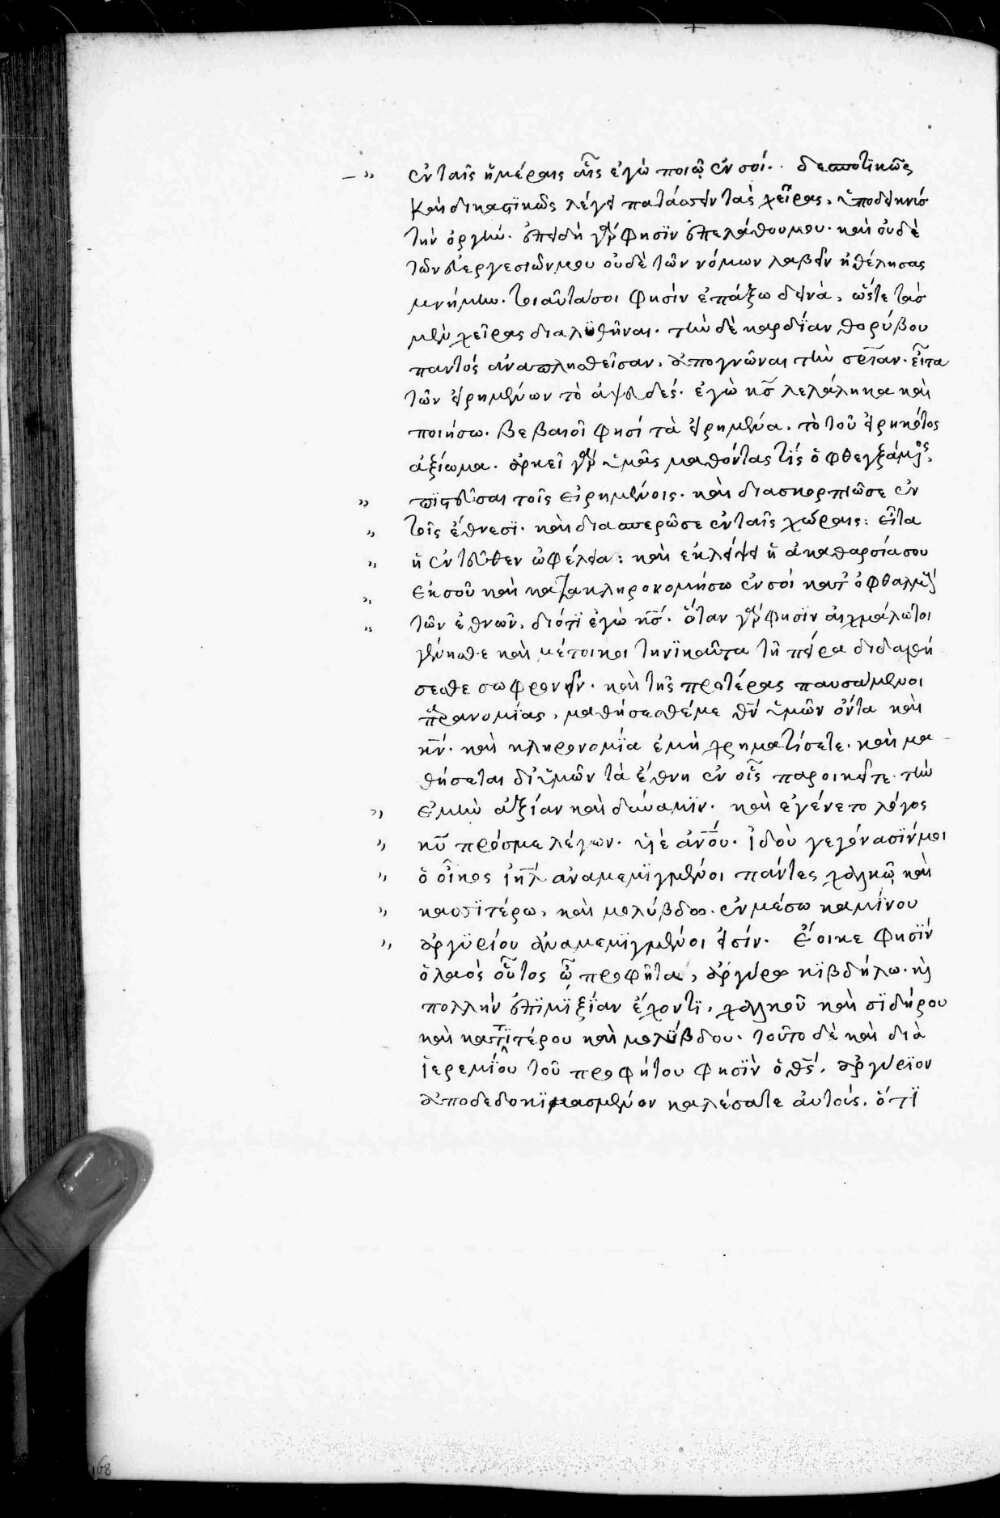 ἐν ταῖς ἡμέραις αἷς ἐγὼ ποιῶ ἐν σοί. δεσποτικῶς
καὶ δικαστικῶς λέγει πατάσσειν τὰς χεῖρας, ὑποδεικνὺς
τὴν ὀργήν. ἐπειδὴ γάρ φησϊν ἐπελάθου μου. καὶ οὐδὲ
τῶν εὐεργεσιῶν μου οὐδὲ τῶν νόμων λαβεῖν ἠθέλησας
μνήμην. τοιαῦτα σοι φησὶν ἐπάξω δεινὰ, ὥστε τὰς
μὲν χεῖρας διαλϋθῆναι. τὴν δὲ καρδίαν θορύβου
παντὸς ἀναπλησθεῖσαν, ἀπογνῶναι τὴν σρίαν. εἶτα
τῶν εἰρημένων τὸ ἀψευδές. ἐγὼ κς λελάληκα καὶ
ποιήσω. βεβαιοῖ φησὶ τὰ εἰρημένα, τὸ τοῦ εἰρηκότος
ἀξίωμα. ἀρκεῖ γὰρ ὑμᾶς μαθόντας τίς ὁ φθεγξάμενος,
πϊστεῦσαι τοῖς εἰρημένοις. καὶ διασκορπιῶ σε ἐν
τοῖς ἔθνεσϊ. καὶ διασπερῶ σε ἐν ταῖς χώραις: εἶτα
ἡ ἐντεῦθεν ὠφέλεια: καὶ ἐκλείψει ἡ ἀκαθαρσία σου
ἐκ σοῦ καὶ κατακληρονομήσω ἐν σοὶ κατ' ὀφθαλμοὺς
τῶν ἐθνῶν, διότϊ ἐγὼ κς. ὅταν γάρ φησϊν αἰχμάλωτοι
γένησθε καὶ μέτοικοι τηνϊκαῦτα τῇ πείρα διδαχθή
σεσθε σωφρονεῖν. καὶ τῆς προτέρας παυσάμενοι
παρανομίας, μαθήσεσθέ με θν ὑμῶν ὄντα καὶ
κν. καὶ κληρονομία ἐμὴ χρηματίσετε. καὶ μα
θήσεται δι' ὑμῶν τὰ ἔθνη ἐν οἷς παροικεῖτε τὴν
ἐμὴν ἀξίαν καὶ δύναμϊν. καὶ ἐγένετο λόγος
κυ πρός με λέγων. υἱὲ ἀνου. ἰδοὺ γεγόνασϊν μοι
ὁ οἶκος ιηλ ἀναμεμϊγμένοι πάντες χαλκῶ καὶ
κασσϊτέρω, καὶ μολύβδω. ἐν μέσω καμίνου
ἀργϋρίου ἀναμεμϊγμένοι εἰσίν. ἔοικε φησϊν
ὁ λαὸς οὗτος ὦ προφῆτα, ἀργύρω κϊβδήλω. καὶ
πολλὴν ἐπϊμϊξίαν ἔχοντϊ, χαλκοῦ καὶ σϊδήρου
καὶ καττϊτέρου καὶ μολύβδου. τοῦτο δὲ καὶ διὰ
ἱερεμίου τοῦ προφήτου φησϊν ὁ θς, ἀργύρϊον
ἀποδεδοκϊμασμένον καλέσατε αὐτούς, ὅτϊ
168